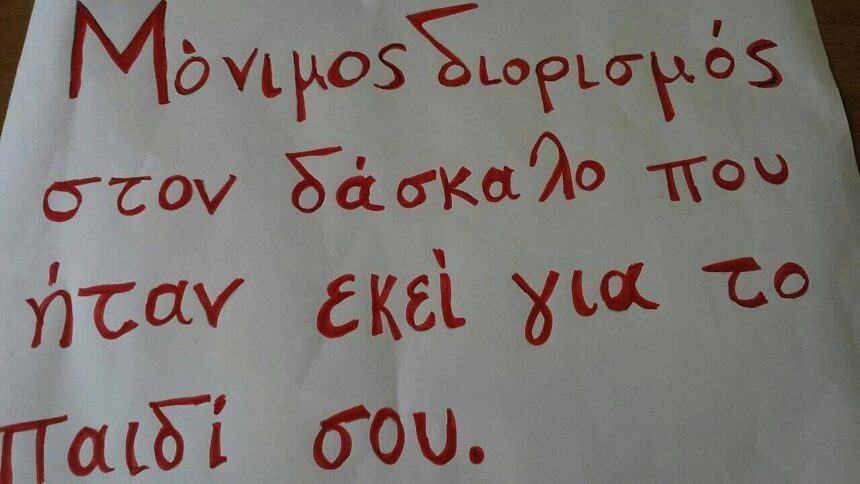 Μόνιμος διορισμός
στον δάσκαλο που
ήταν εκεί για το
παιδί σου.